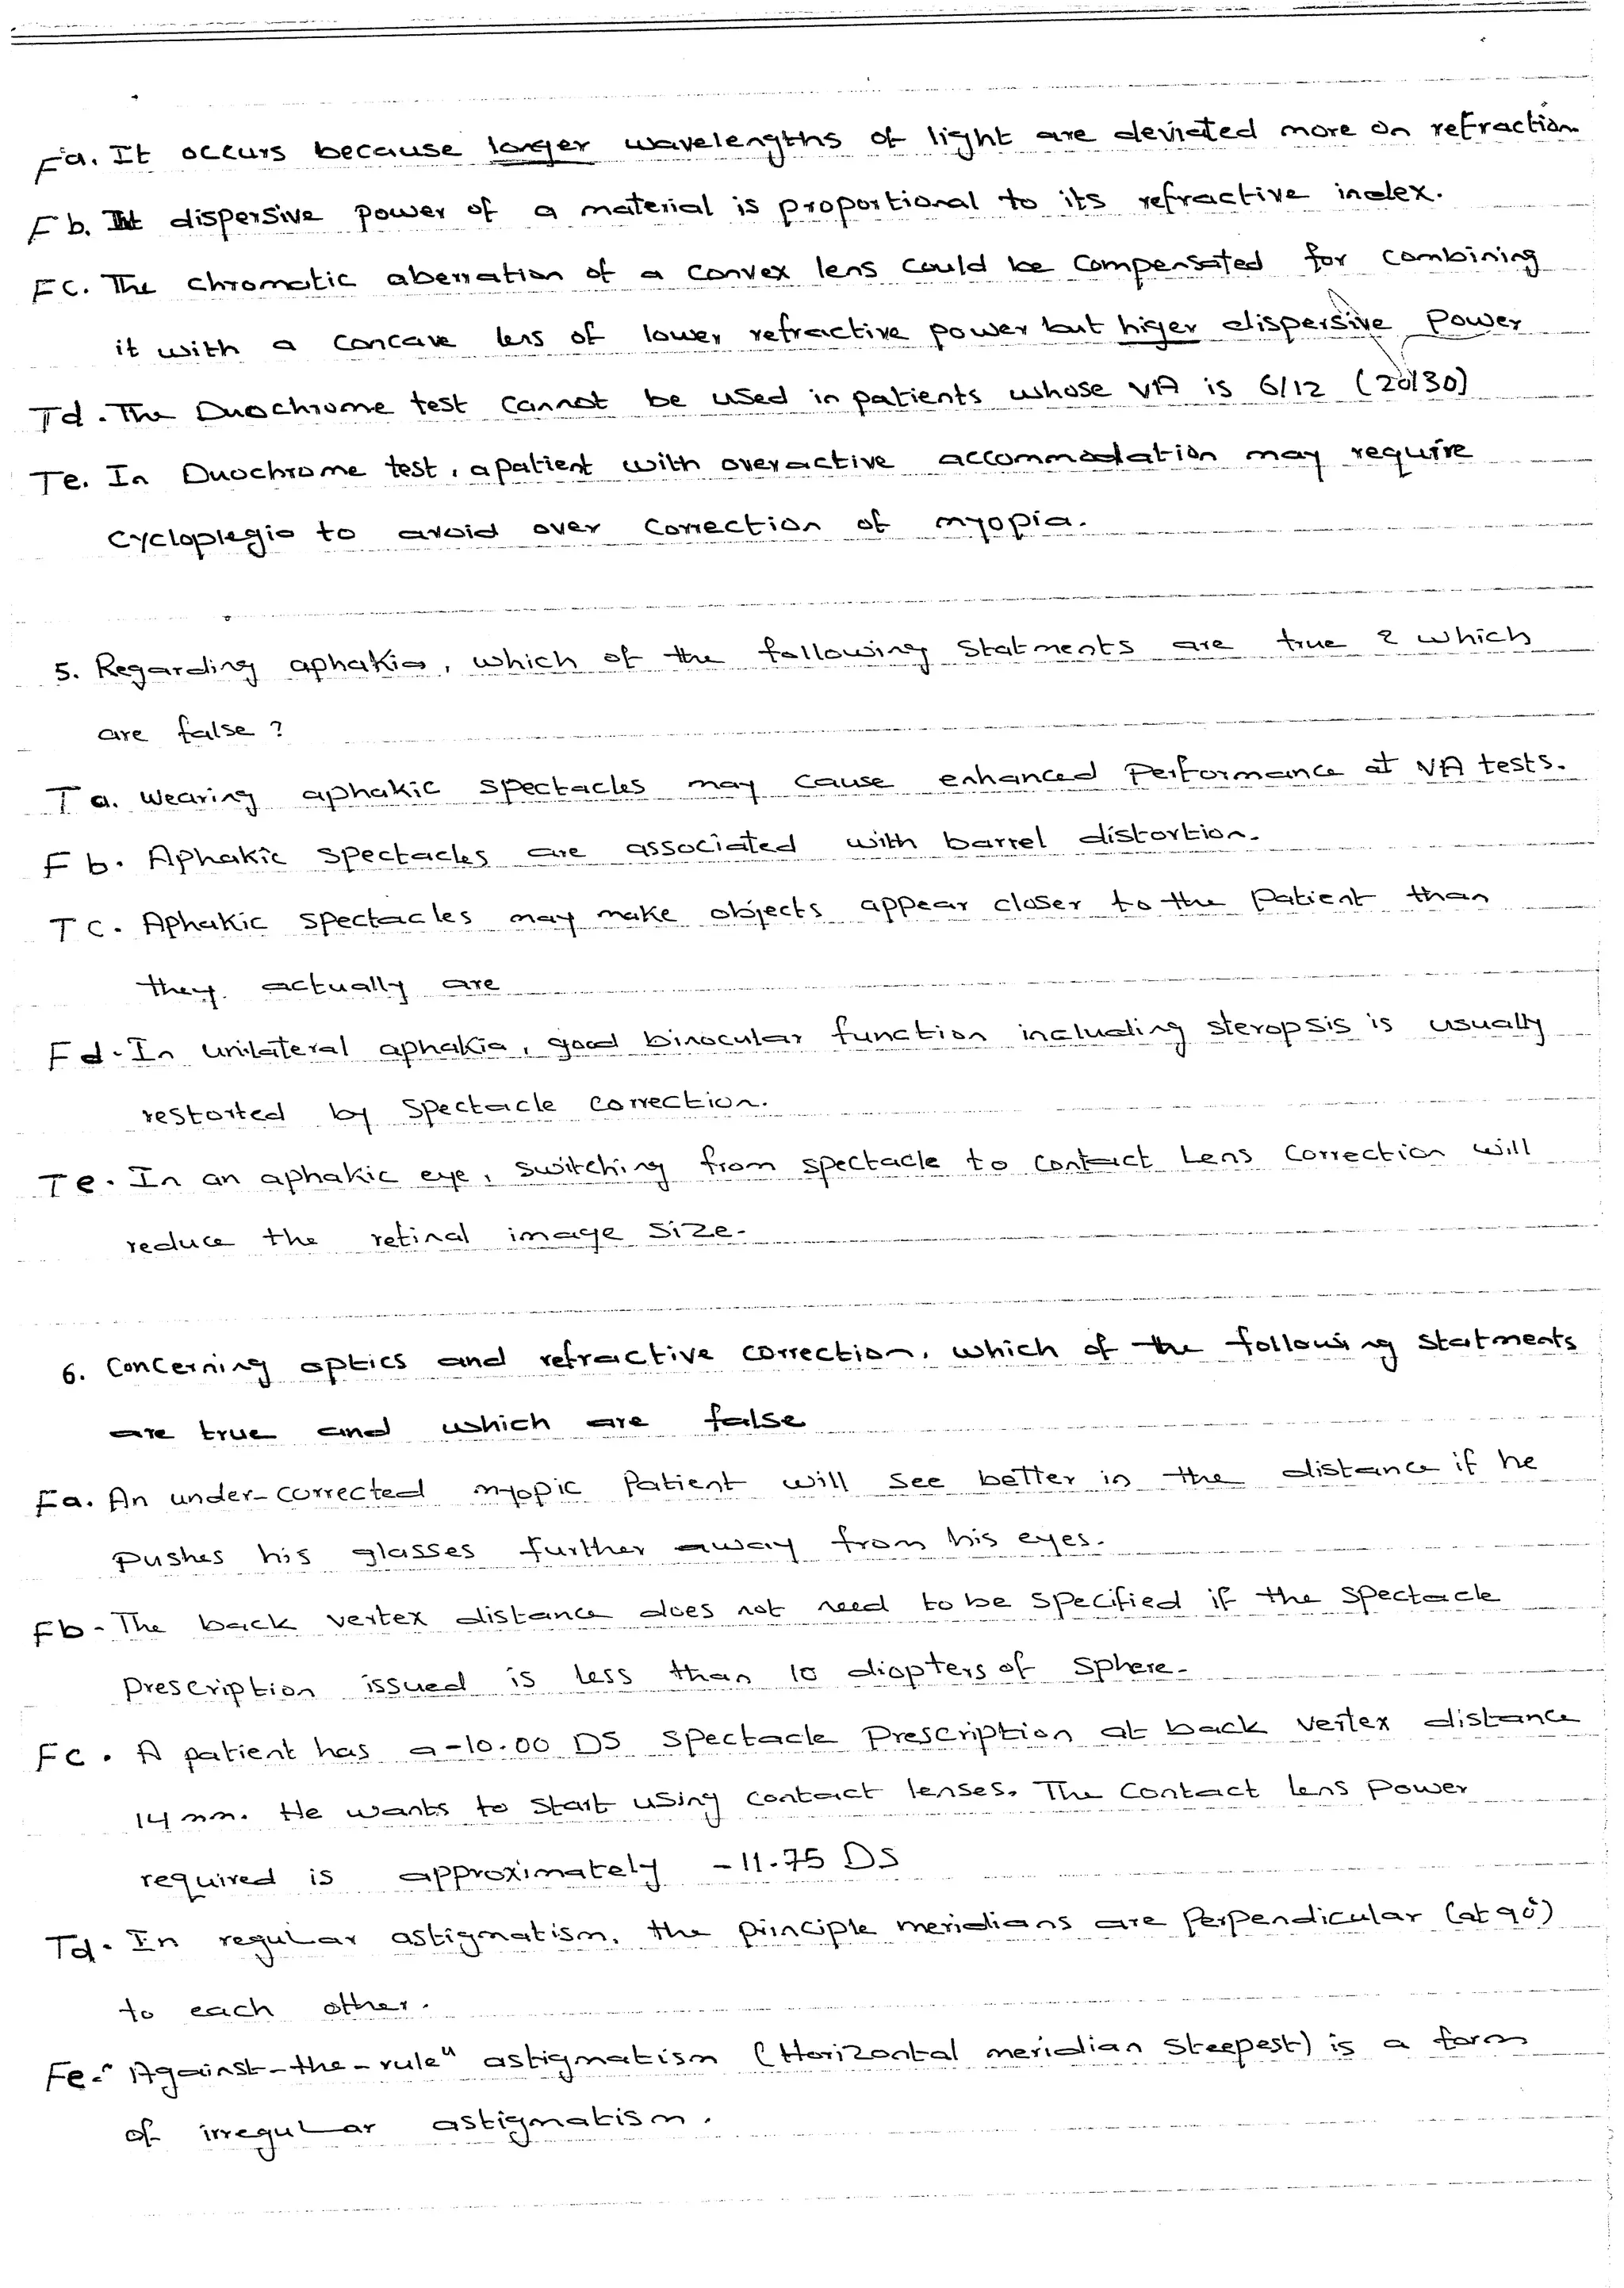 Fa. It occurs because longer wavelengths of light are deviated more on refraction
Fb. dispersive power of a material is proportional to its refractive index.
Fc. The chromatic aberration of a convex lens could be compensated for combining
it with a concave lens of lower refractive power but higer dispersive power
Td. The Duochrome test cannot be used in patients whose VA is 6/12 (20/30)
Te. In Duochrome test, a patient with overactive accommodation may require
cycloplegia to avoid over correction of myopia.
5. Regarding aphakia, which of the following Statments are true ? which
are false ?
T a. Wearing aphakic spectacles may cause enhanced Performance at VA tests.
F b. Aphakic spectacles are associated with barrel distortion.
T c. Aphakic spectacles may make objects appear closer to the patient than
they actually are
F d. In unilateral aphakia, good binocular function including steropsis is usually
restorted by Spectacle correction.
T e. In an aphakic eye, switching from spectacle to contact Lens Correction will
reduce the retinal image size.
6. Concerning optics and refractive correction, which of the following statments
are true and which are false
Fa. An under-corrected myopic Patient will see better in the distance if he
pushes his glasses further away from his eyes.
Fb. The back vertex distance does not need to be specified if the spectacle
prescription issued is less than 10 diopters of sphere.
Fc. A patient has a -10.00 DS spectacle prescription at back vertex distance
14 mm. He wants to start using contact lenses. The contact lens power
required is approximately -11.75 DS
Td. In regular astigmatism, the principle meridians are perpendicular (at 90°)
to each other.
Fe. "Against-the-rule" astigmatism (Horizontal meridian steepest) is a form
of irregular astigmatism.